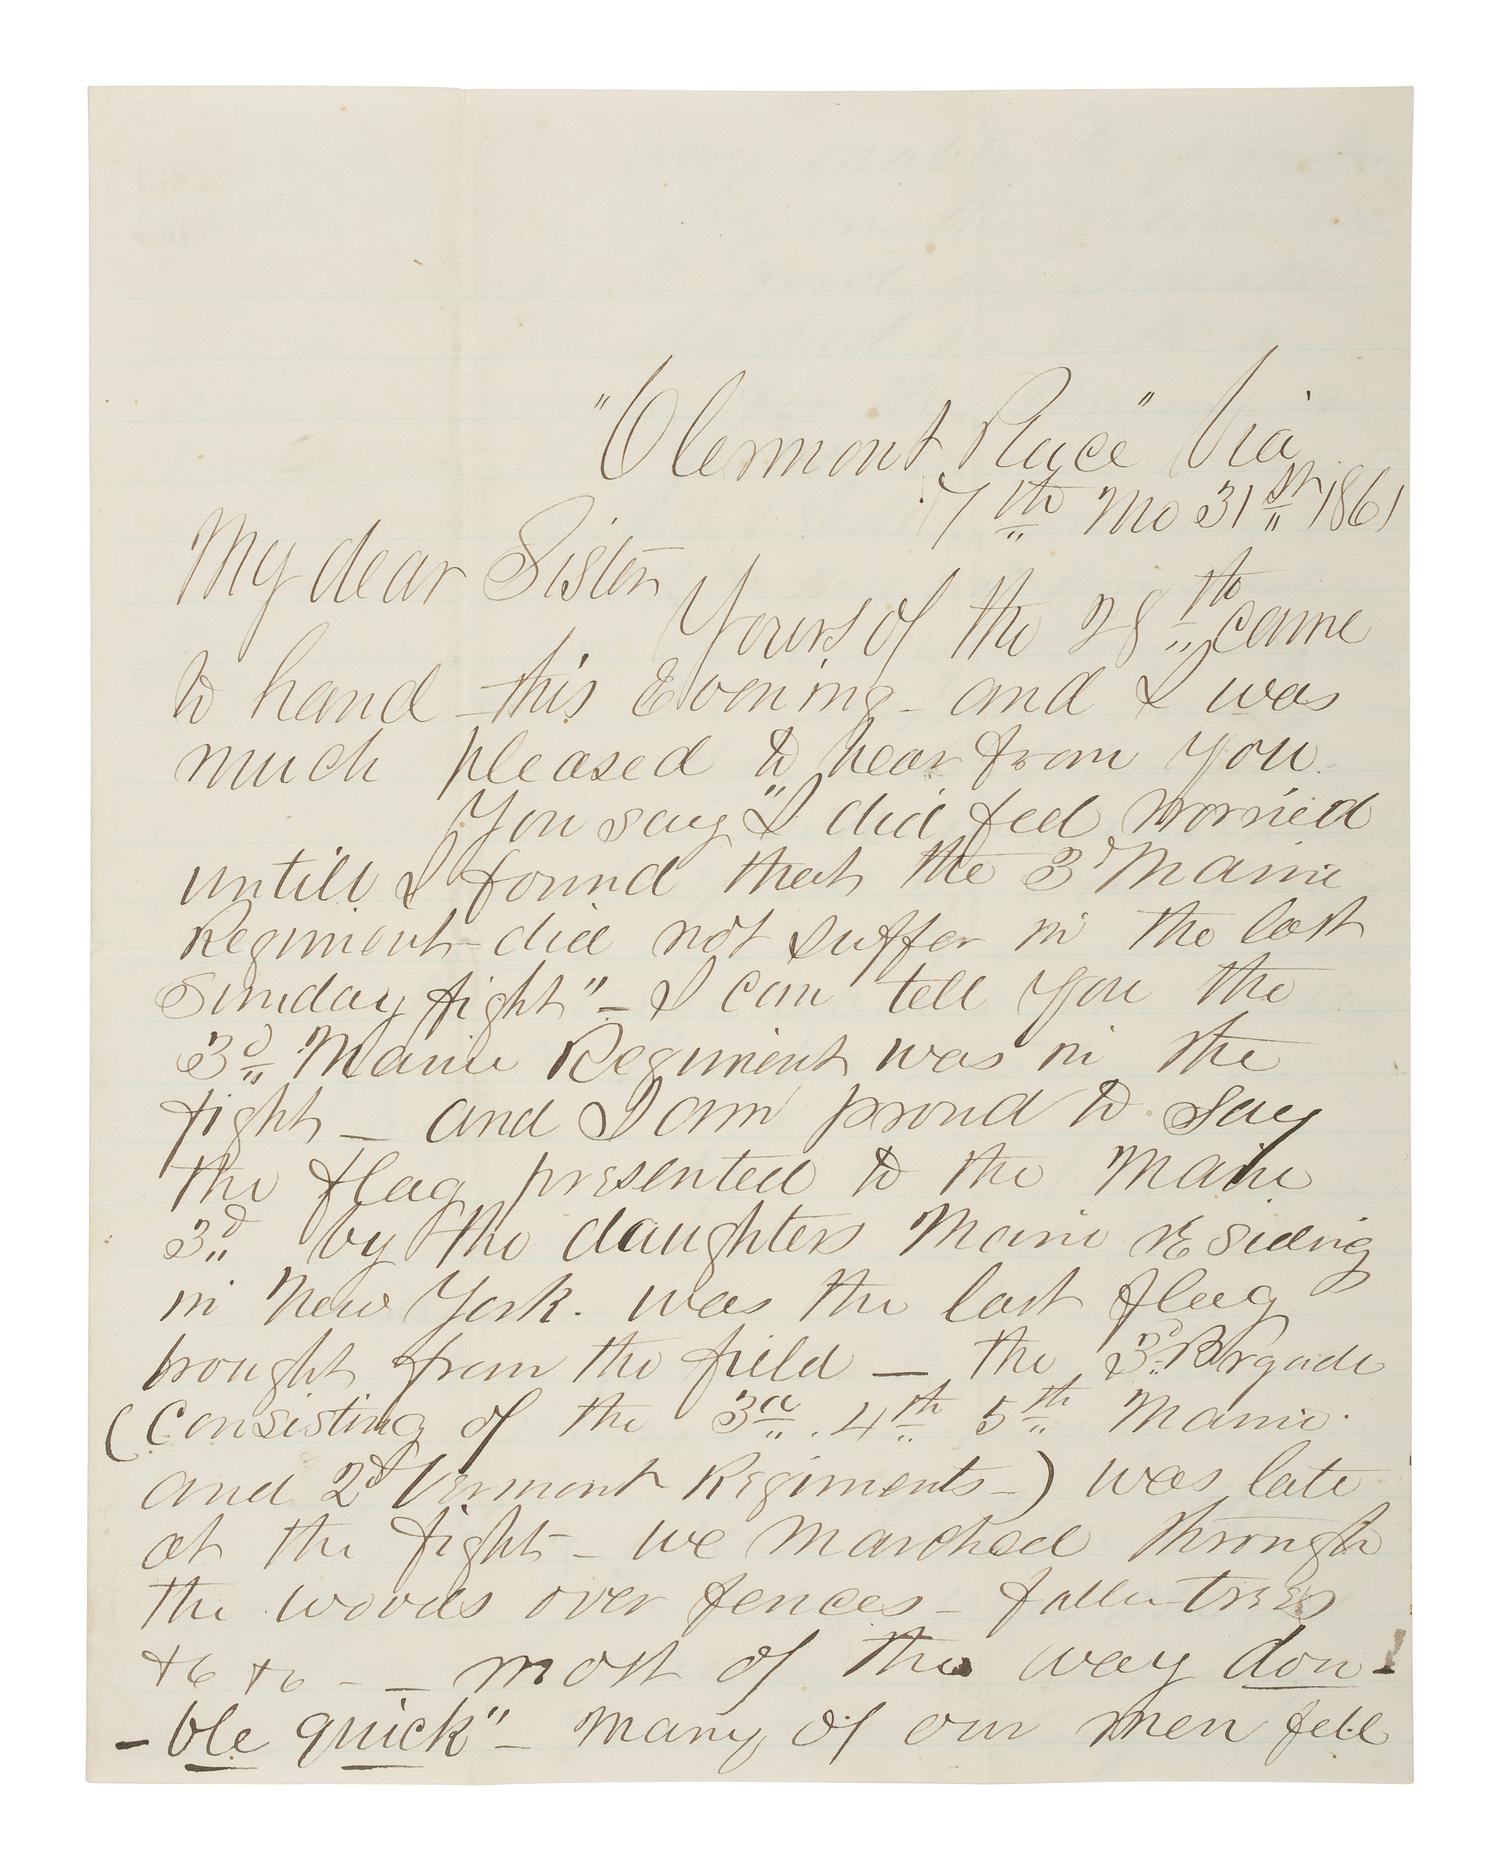 "Clermont Place" Via
7th Mo 31st 1861
My dear Sister
Yours of the 28th came
to hand this Evening - and I was
much pleased to hear from you.
You say "I did feel worried
untill I found that the 3d Maine
Regiment did not suffer in the last
Sunday fight" - I can tell you the
3d Maine Regiment was in the
fight - and I am proud to say
the flag presented to the Maine
3d by the daughters Maine residing
in New York. was the last flag
brought from the field - the 3d Brgade
(Consisting of the 3rd. 4th 5th Maine.
and 2d Vermont Regiments -) was late
at the fight - we marched through
the woods over fences - fallen trees
&c &c - - most of the way dou-
-ble quick" - Many of our men fell